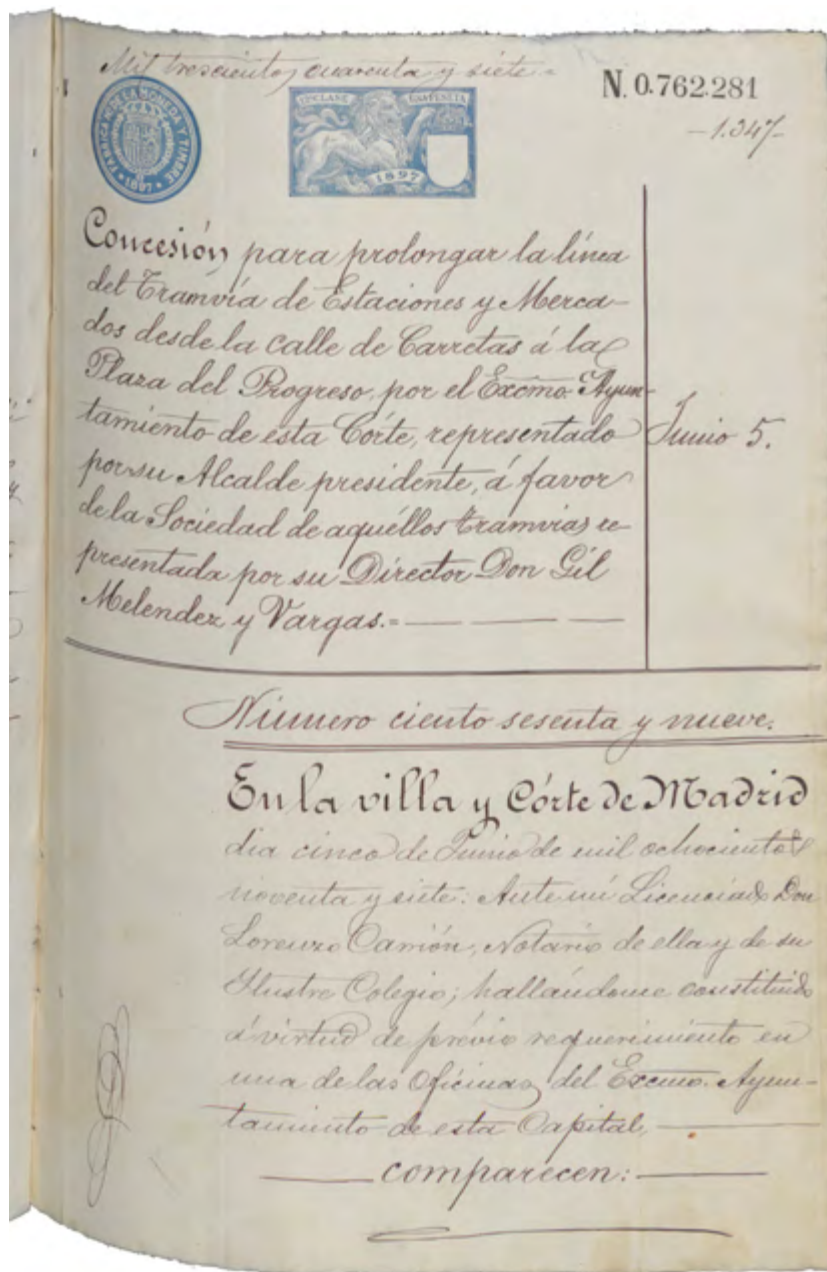 Mil trescientos cuarenta y siete =
N. 0.762.281
-1.347-
FABRICA N. DE LA MONEDA Y TIMBRE
1897
12ª CLASE
PESETA
1897
Concesión para prolongar la línea
del Tramvía de Estaciones y Merca-
dos desde la calle de Carretas á la
Plaza del Progreso, por el Excmo. Ayun-
tamiento de esta Córte, representado
por su Alcalde presidente, á favor
de la Sociedad de aquéllos tramvias re-
presentada por su Director Don Gil
Melendez y Vargas.=
Junio 5.
Número ciento sesenta y nueve.
En la villa y Córte de Madrid
dia cinco de Junio de mil ochocientos
noventa y siete: Ante mi Licenciado Don
Lorenzo Carrión, Notario de ella y de su
Ilustre Colegio; hallándome constituido
á virtud de prévio requerimiento en
una de las Oficinas del Excmo. Ayun-
tamiento de esta Capital,
comparecen: